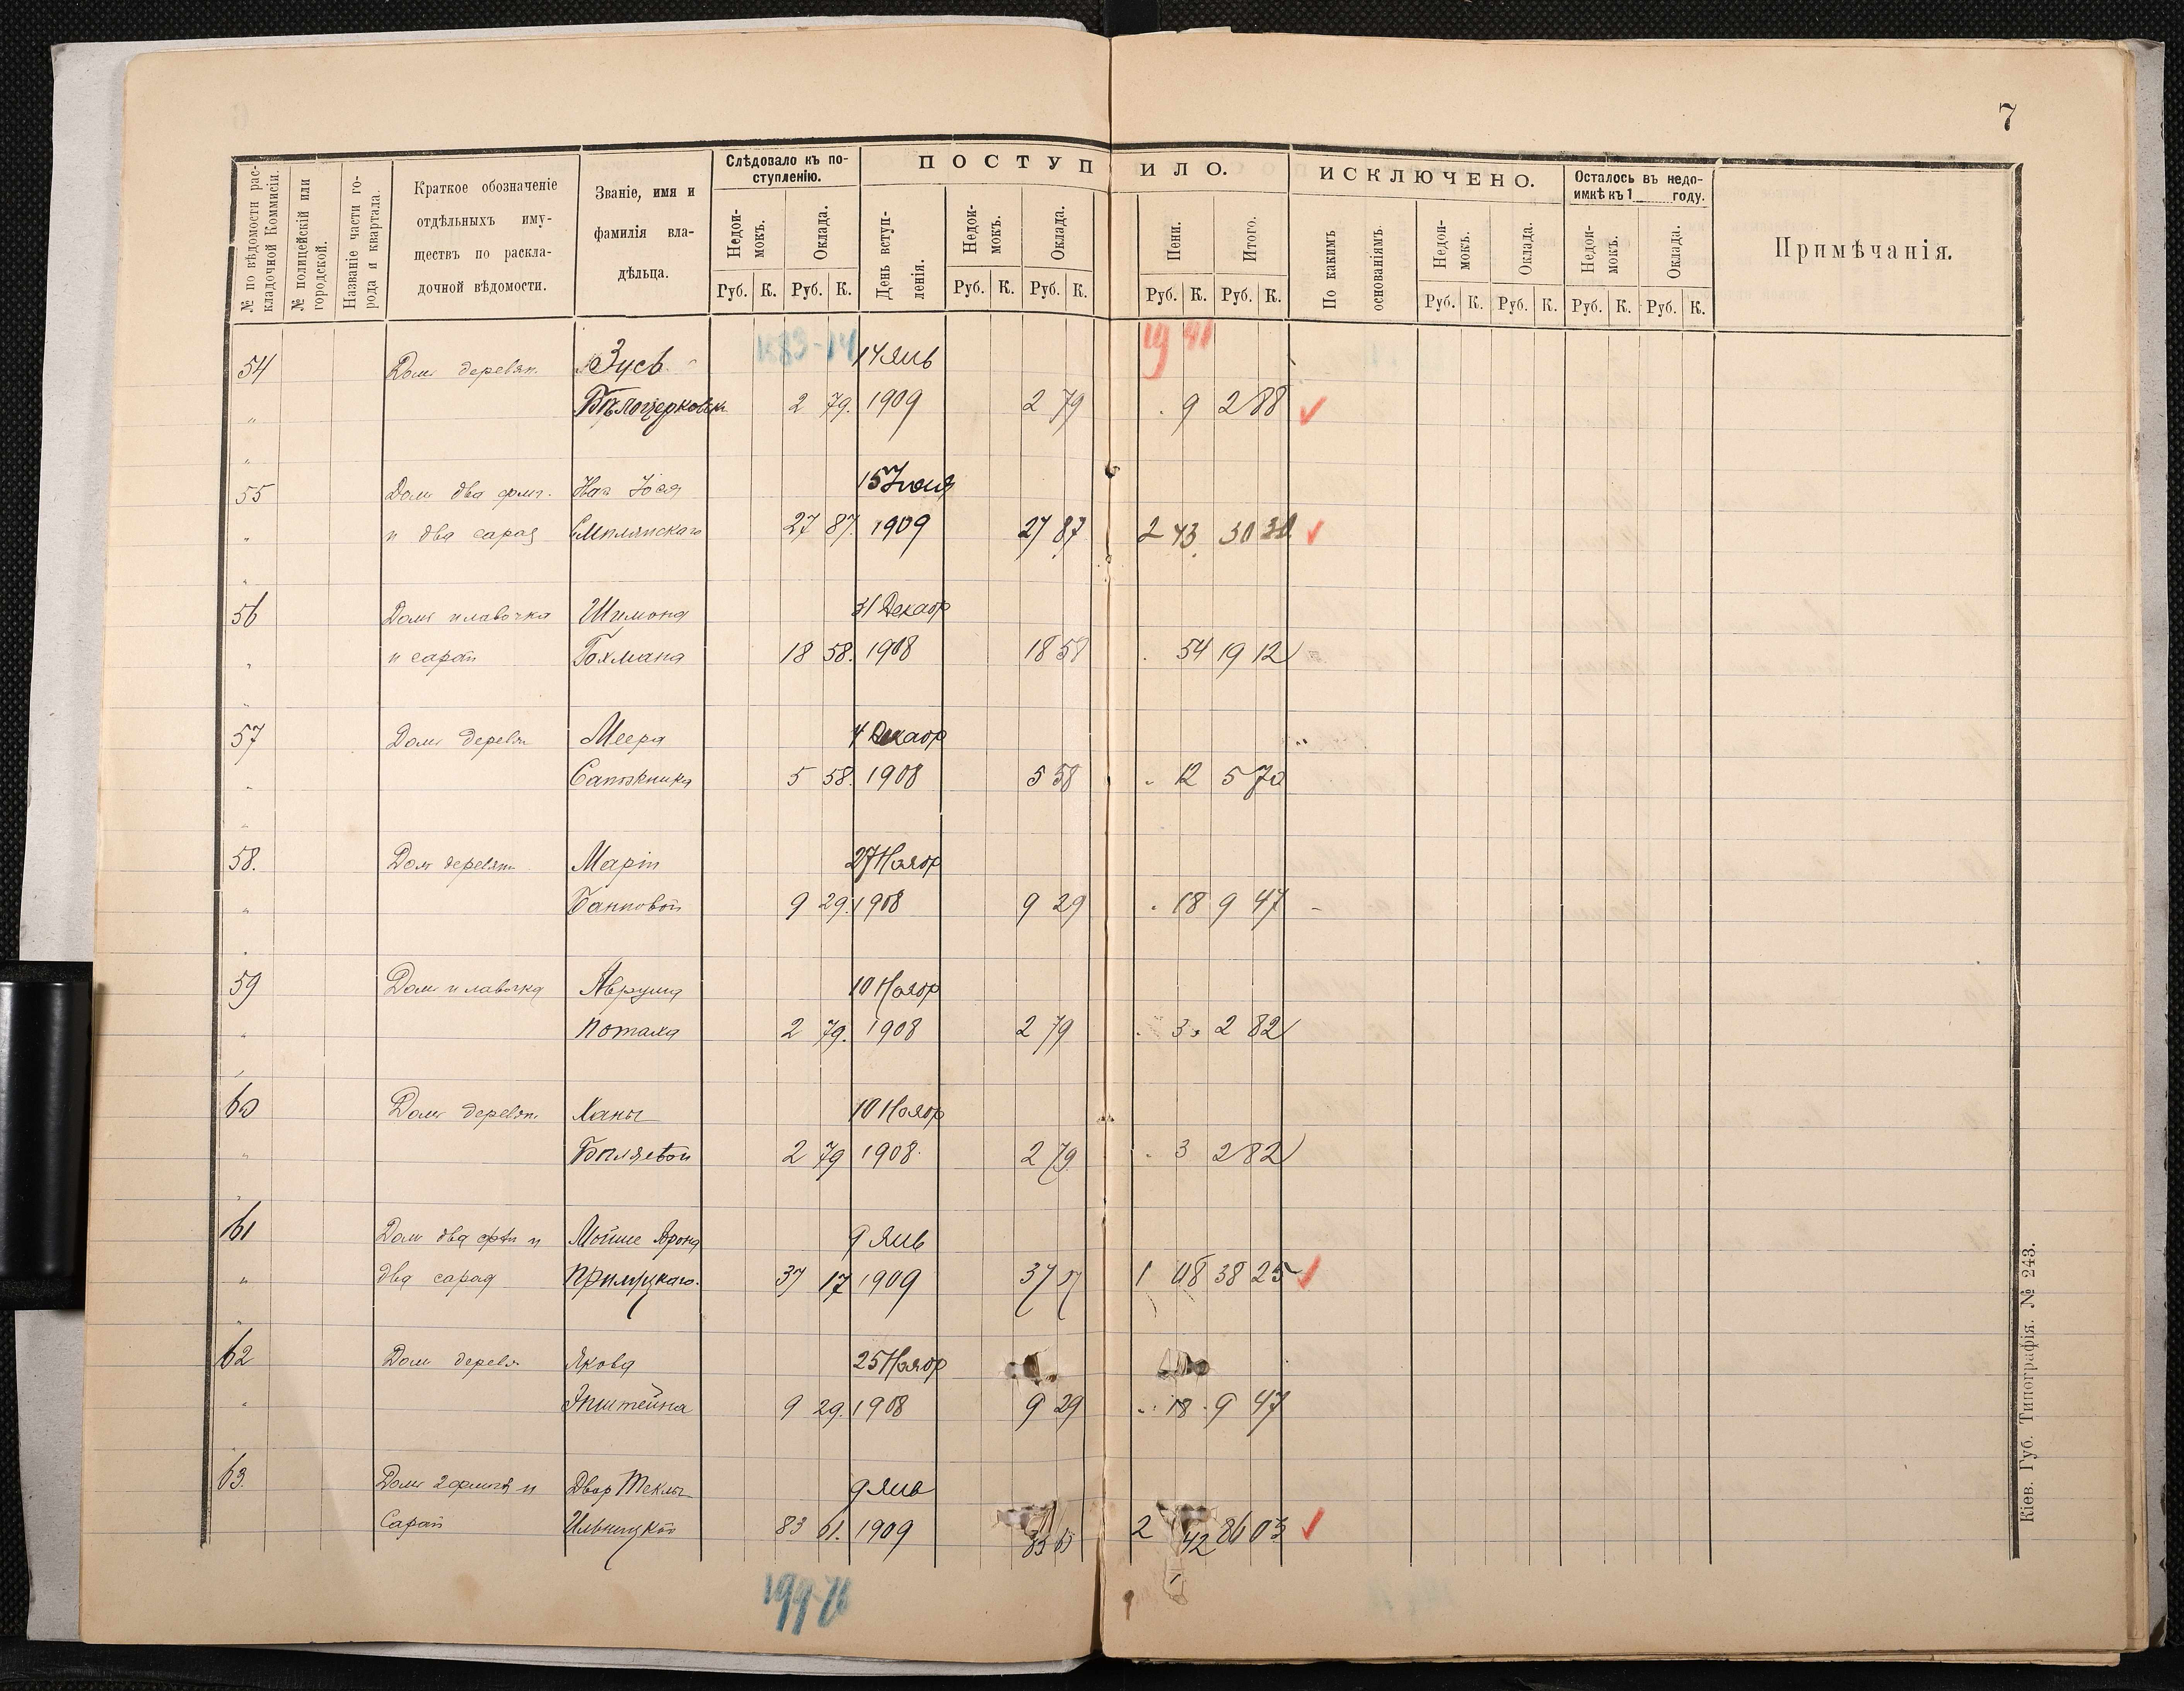 7
№ по вѣдомости рас-
кладочной Коммисіи.
№ полицейскій или
городской.
Названіе части го-
рода и квартала.
Краткое обозначеніе
отдѣльныхъ иму-
ществъ по раскла-
дочной вѣдомости.
Званіе, имя и
фамилія вла-
дѣльца.
Слѣдовало къ по-
ступленію.
Недои-
мокъ.
Оклада.
Руб. К. Руб. К.
ПОСТУПИЛО.
День вступ-
ленія.
Недои-
мокъ.
Оклада.
Руб. К. Руб. К.
Пени.
Итого.
Руб. К. Руб. К.
ИСКЛЮЧЕНО.
По какимъ
основаніямъ.
Недои-
мокъ.
Оклада.
Руб. К. Руб. К.
Осталось въ недо-
имкѣ къ 1 году.
Недои-
мокъ.
Оклада.
Руб. К. Руб. К.
Примѣчанія.
19 41
54 Домъ деревян. Зуся 14 Янв
" Бѣлоцерковск 2 79. 1909 2 79 . 9 2 88
"
55 Домъ два флиг. 15 Іюня
" и два сарая Смѣлянскаго 27 87. 1909 27 87 2 43 30 30
"
56 Домъ и лавочка Шимона 31 Декабр
" и сарай Гохмана 18 58. 1908 18 58 . 54 19 12
"
57 Домъ деревян Меера 4 Декабр
" Сапожника 5 58. 1908 5 58 " 12 5 70
"
58. Домъ деревян Маріи 27 Ноябр
" 9 29. 1908 9 29 . 18 9 47
"
59 Домъ и лавочка Аврума 10 Ноябр
" Поташа 2 79. 1908 2 79 . 3 2 82
"
60 Домъ деревян. Ханы 10 Ноябр
" Бѣляевой 2 79 1908. 2 79 . 3 2 82
"
61 Домъ два фл и Мойше Арона 9 Янв
" два сарая Прилуцкаго. 37 17 1909 37 17 1 08 38 25
"
62 Домъ деревя Якова 25 Ноябр
" Эпштейна 9 29. 1908 9 29 . 18 9 47
"
63. Домъ 2 флигеля и Двор Теклы 9 Янв
Сарай Ильницкой 83 61. 1909 83 61 2 42 86 03
199-76
Кіев. Губ. Типографія. № 243.